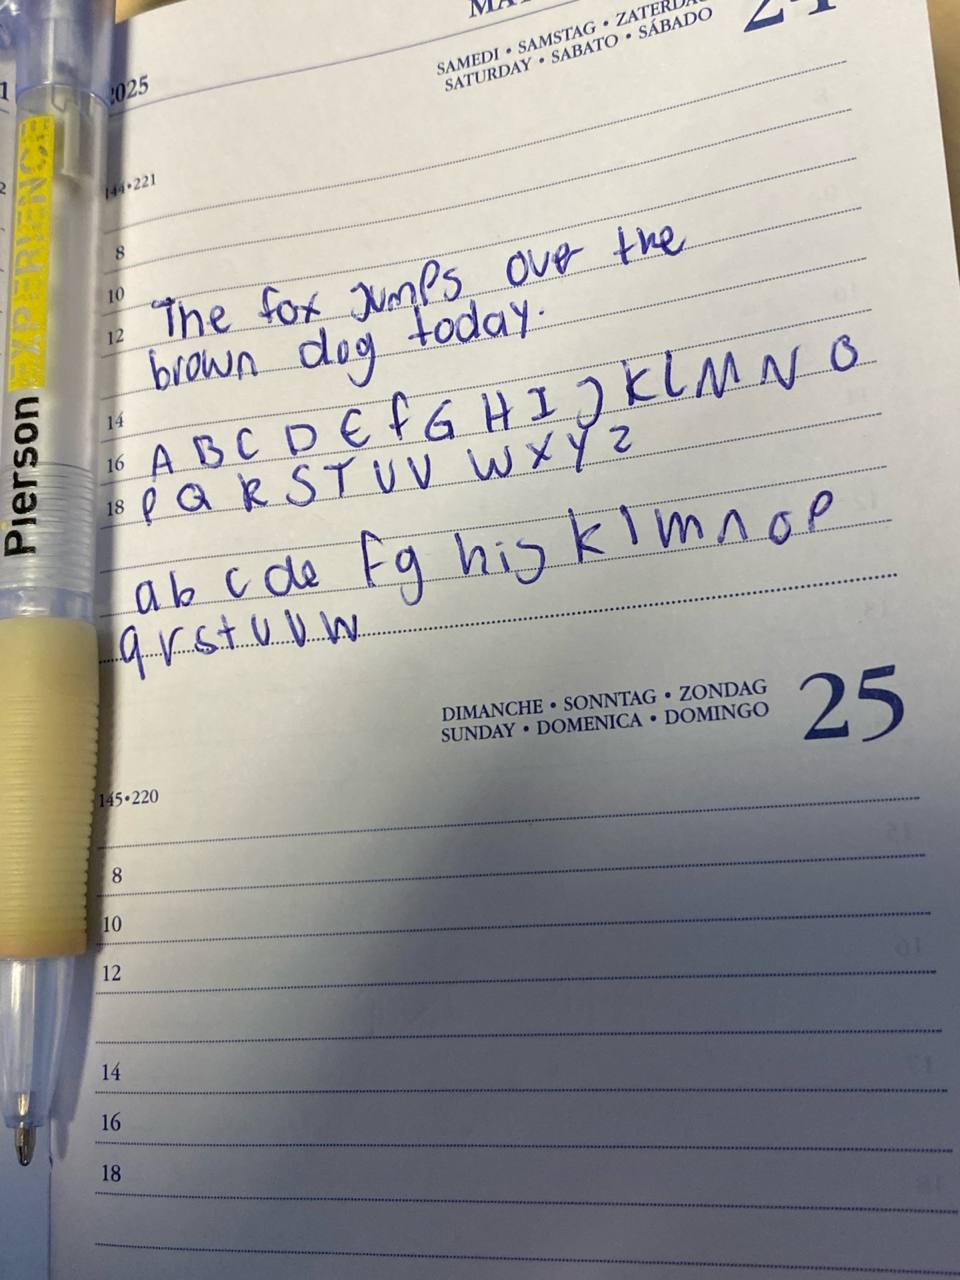 2025
SAMEDI • SAMSTAG • ZATERDA
SATURDAY • SABATO • SÁBADO
24
144•221
8
10
The fox jumps over the
12
brown dog today.
14
A B C D E f G H I J K L M N O
16
P Q R S T U V W X Y Z
18
a b c d e f g h i j k l m n o p
q r s t u v w
DIMANCHE • SONNTAG • ZONDAG
SUNDAY • DOMENICA • DOMINGO
25
145•220
8
10
12
14
16
18
Pierson EXPERIENCE